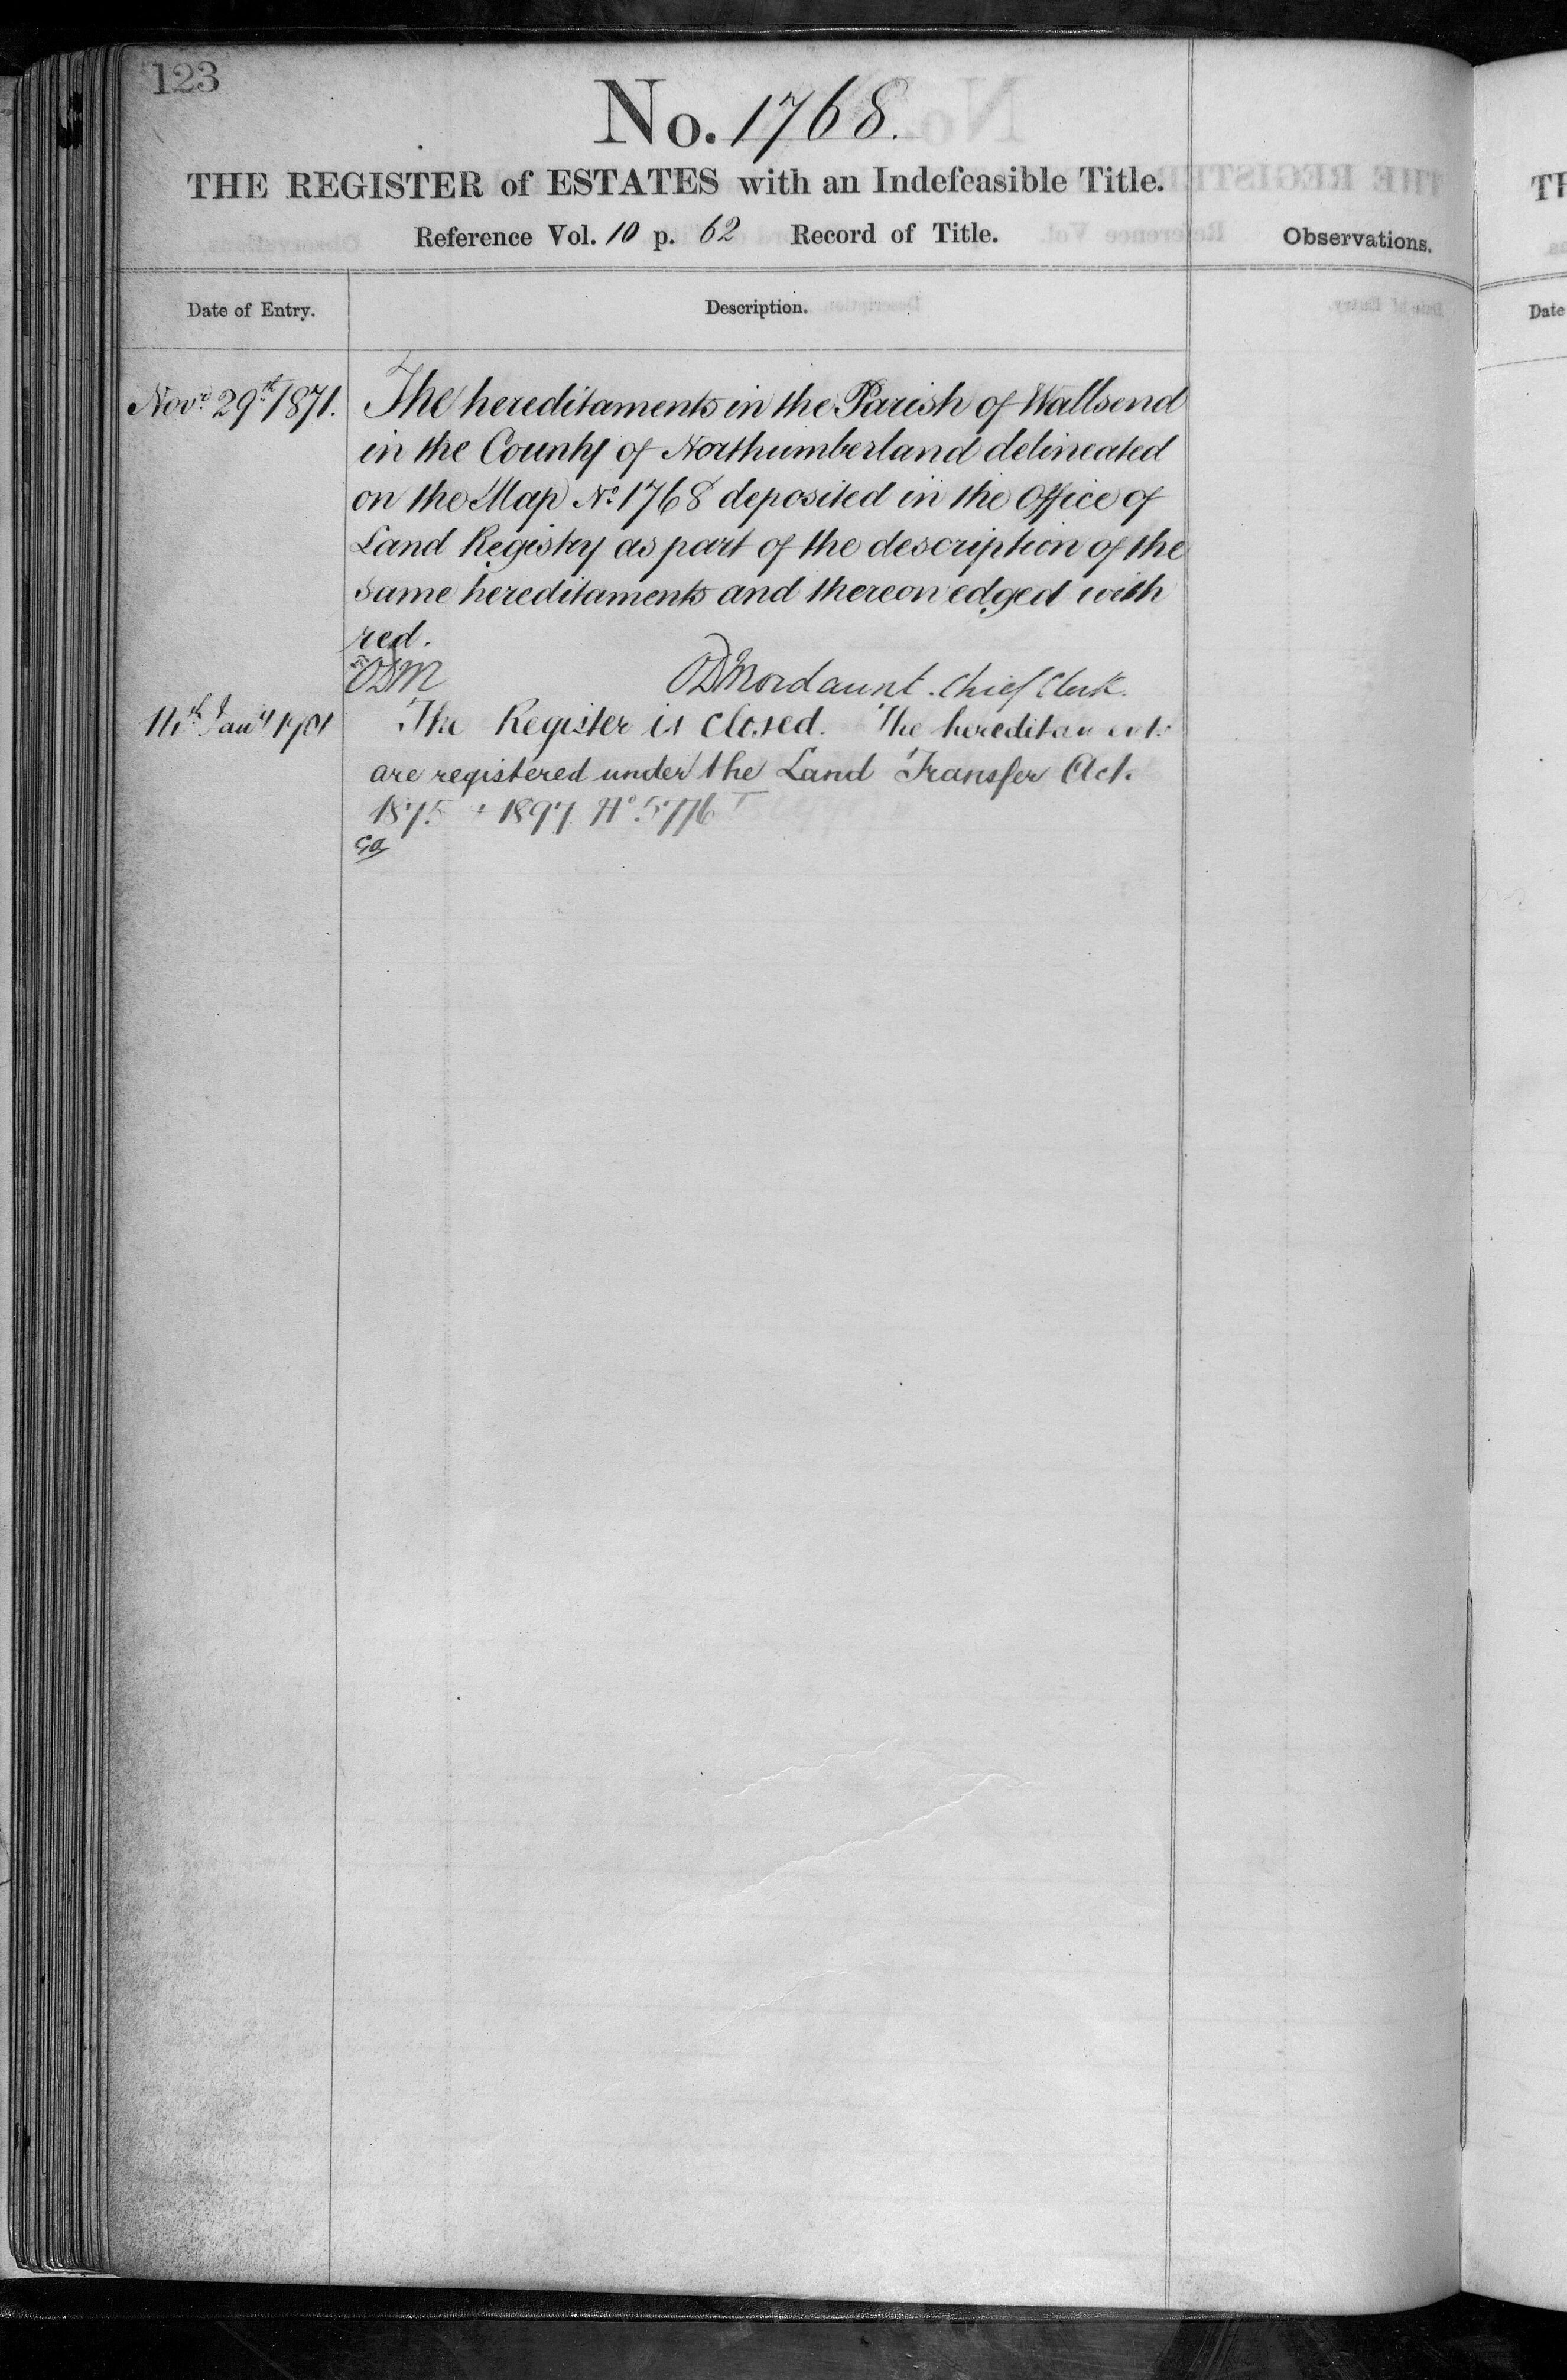 123
No. 1768.
THE REGISTER of ESTATES with an Indefeasible Title.
Reference Vol. 10 p. 62 Record of Title.
Observations.
Date of Entry.
Description.
Novr. 29th 1871.
The hereditaments in the Parish of Wallsend
in the County of Northumberland delineated
on the Map No. 1768 deposited in the Office of
Land Registry as part of the description of the
same hereditaments and thereon edged with
red.
ODM
ODMordaunt. Chief Clerk.
Jany 1901
The Register is closed. The hereditaments
are registered under the Land Transfer Act.
1875 + 1897. No. 5776
TH
Date